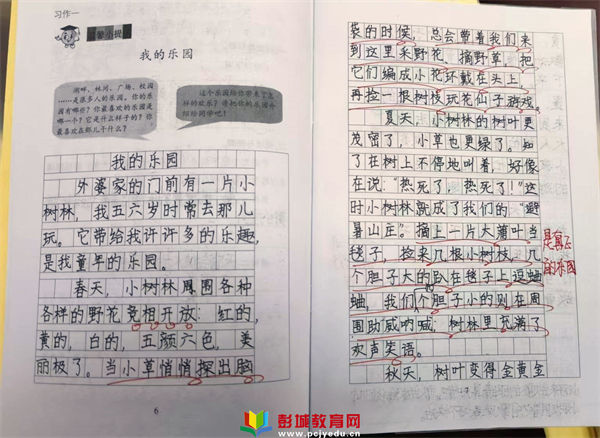 习作一
我的乐园
湖畔、林间、广场、校园
……是很多人的乐园。你的乐
园有哪些？你最喜欢的乐园是
哪一个？它是什么样子的？你
最喜欢在那儿干什么？
这个乐园给你带来了怎
样的欢乐？请把你的乐园介
绍给同学吧！
我的乐园
外婆家的门前有一片小
树林，我五六岁时常去那儿
玩。它带给我许许多的乐趣，
是我童年的乐园。
春天，小树林周围各种
各样的野花竞相开放：红的，
黄的，白的，五颜六色，美
丽极了。当小草悄悄探出脑
6
袋的时候，总会带着我们来
到这里采野花，摘野草，把
它们编成小花环戴在头上，
再捡一根树枝玩花仙子游戏。
夏天，小树林的树叶更
茂密了，小草也更绿了，知
了在树上不停地叫着，好像
在说：“热死了，热死了！”这
时小树林就成了我们的“避
暑山庄”。摘上一片大叶当
毯子，捡来几根小树枝，几
个胆子大的趴在毯子上逗蛐
蛐，我们个胆子小的则在周
围助威呐喊，树林里充满了
欢声笑语。
秋天，树叶变得金黄金
是真正
的乐园
彭城教育网
www.pcjyedu.cn